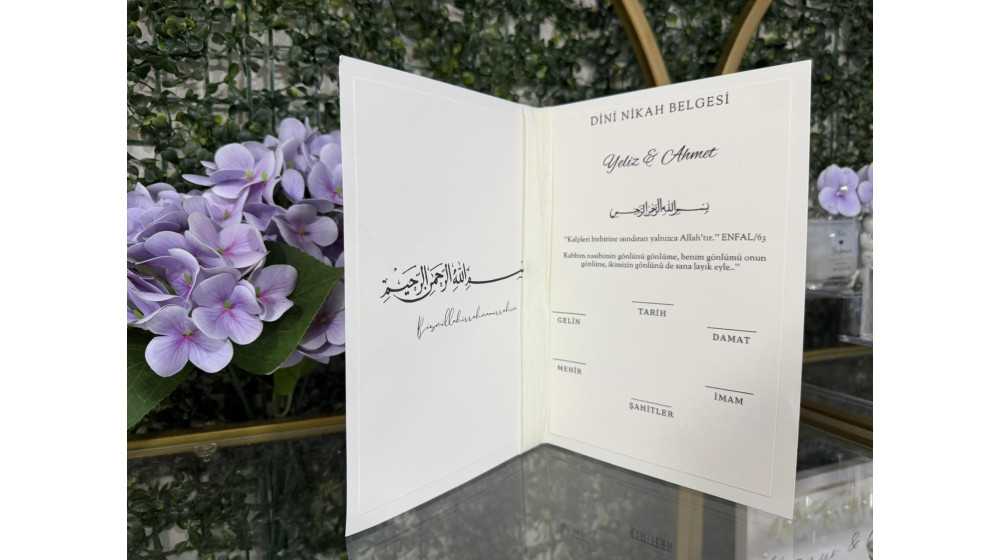 بسم الله الرحمن الرحيم
Bismillahirrahmanirrahim
DİNİ NİKAH BELGESİ
Yeliz & Ahmet
بسم الله الرحمن الرحيم
"Kalpleri birbirine ısındıran yalnızca Allah'tır." ENFAL/63
Rabbim nasibimin gönlünü gönlüme, benim gönlümü onun
gönlüne, ikimizin gönlünü de sana layık eyle..."
TARİH
GELİN
DAMAT
MEHİR
İMAM
ŞAHİTLER